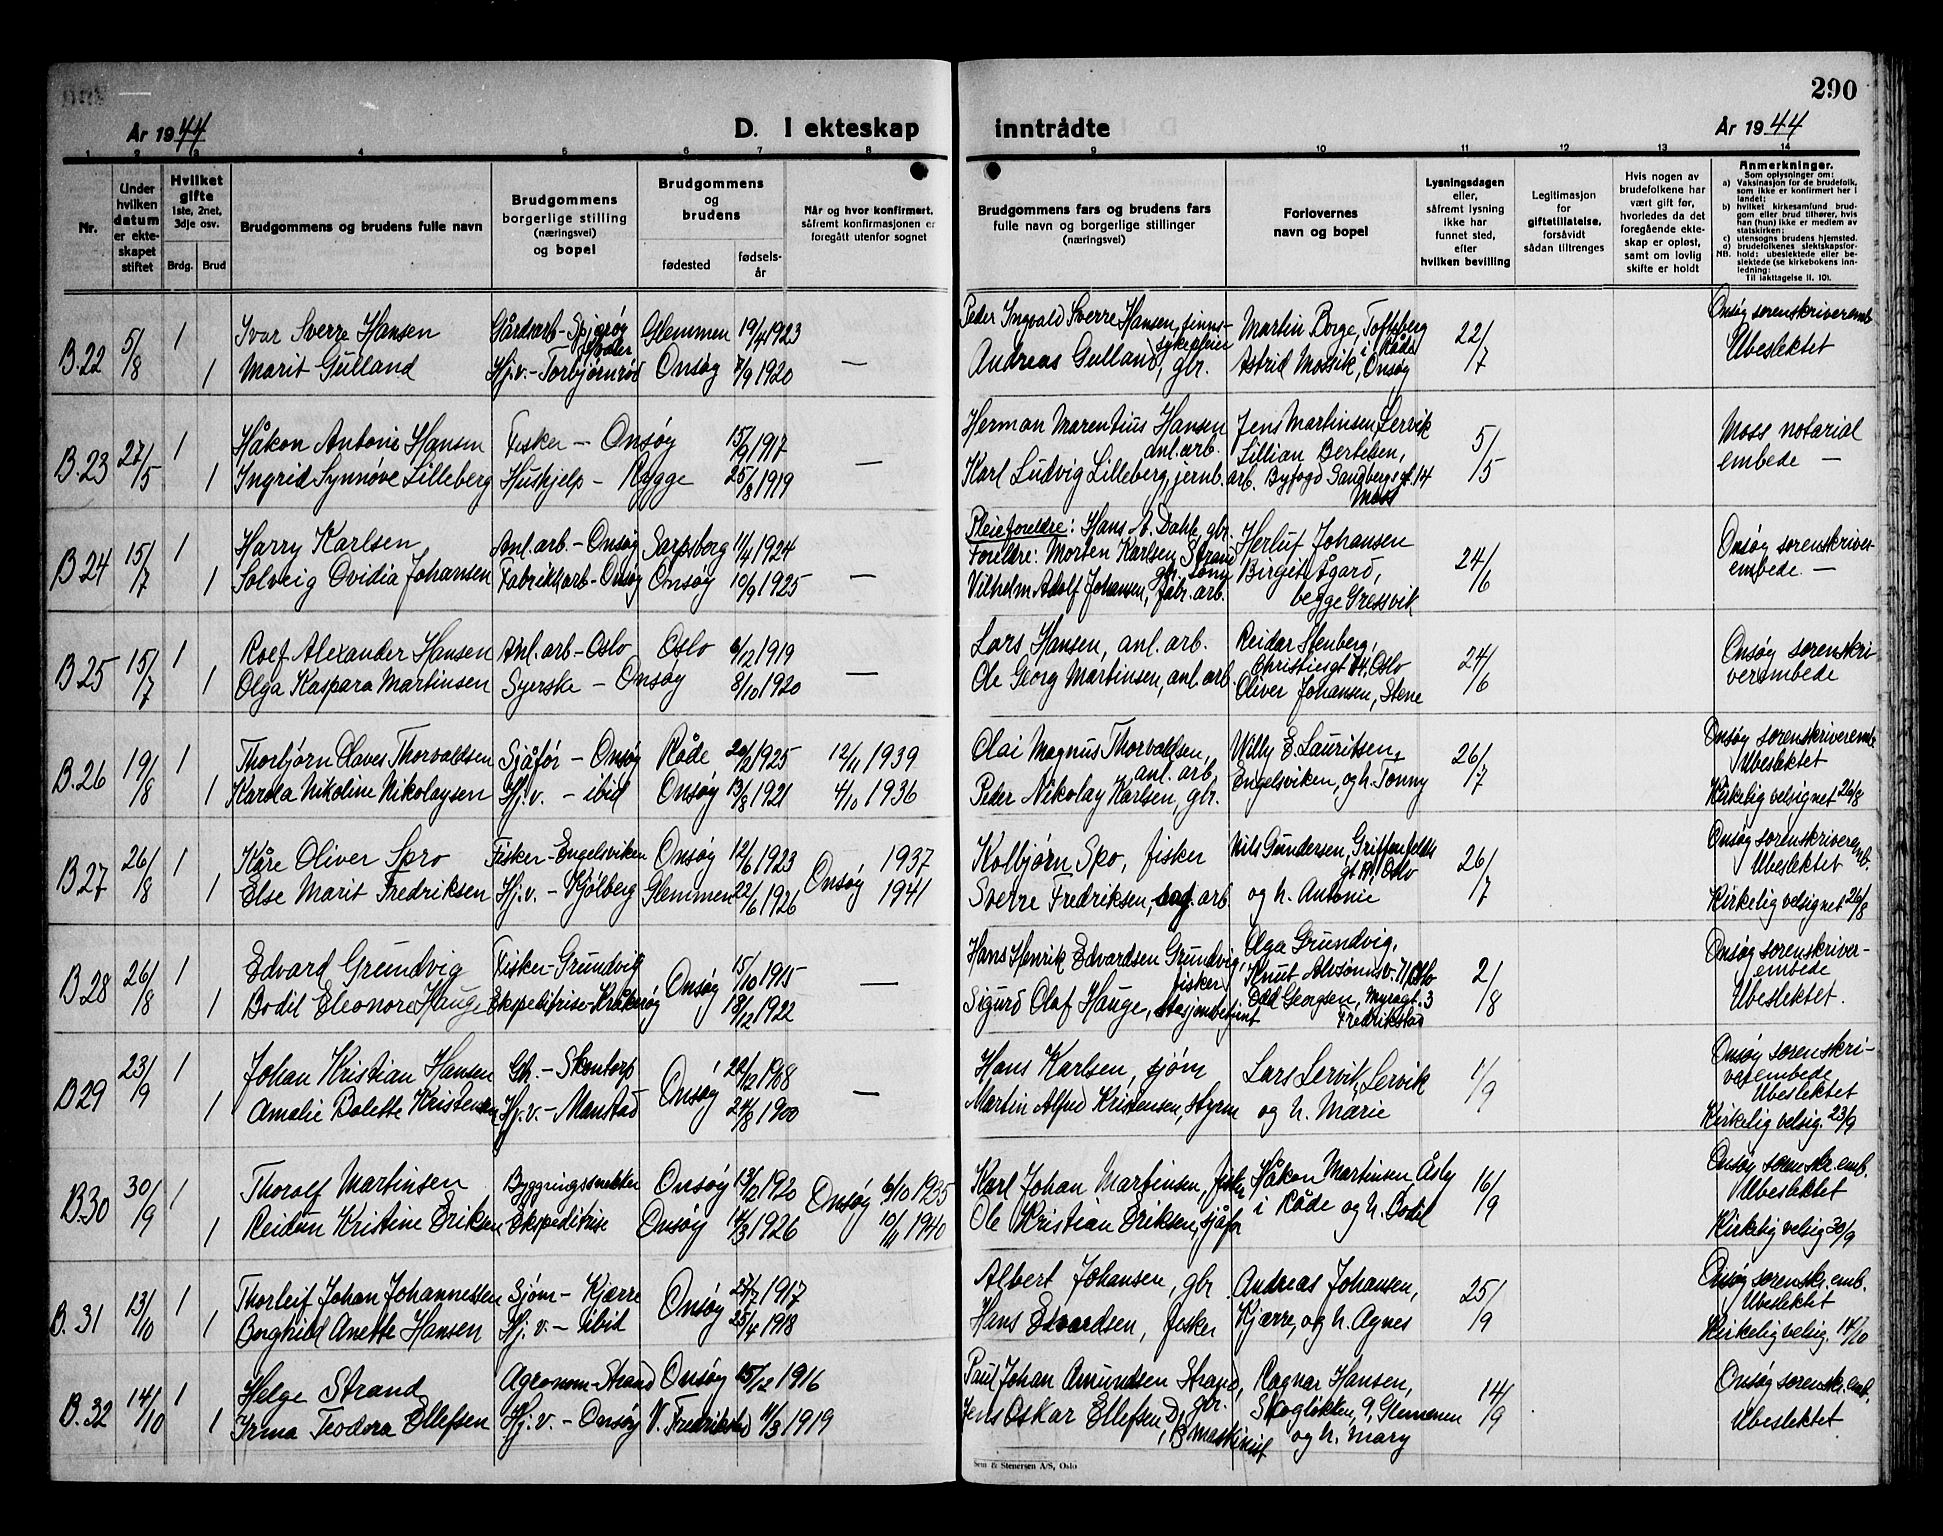 290
År 1944
D. I ekteskap inntrådte
År 1944
1 2 3 4 5 6 7 8 9 10 11 12 13 14
Nr.
Under hvilken datum er ekteskapet stiftet
Hvilket gifte
1ste, 2net, 3dje osv.
Brdg. Brud
Brudgommens og brudens fulle navn
Brudgommens borgerlige stilling (næringsvei) og bopel
Brudgommens og brudens
fødested
fødselsår
Når og hvor konfirmert, såfremt konfirmasjonen er foregått utenfor sognet
Brudgommens fars og brudens fars fulle navn og borgerlige stillinger (næringsvei)
Forlovernes navn og bopel
Lysningsdagen eller, såfremt lysning ikke har funnet sted, efter hvilken bevilling
Legitimasjon for giftetillatelse, forsåvidt sådan tiltrenges
Hvis nogen av brudefolkene har vært gift før, hvorledes da det foregående ekteskap er opløst, samt om lovlig skifte er holdt
Anmerkninger.
Som oplysninger om:
a) Vaksinasjon for de brudefolk, som ikke er konfirmert her i landet:
b) hvilket kirkesamfund brudgom eller brud tilhører, hvis han (hun) ikke er medlem av statskirken:
c) utensogns brudens hjemsted.
d) brudefolkenes slektskapsforhold: ubeslektede eller beslektede (se kirkebokens innledning:
NB.
Til iakttagelse II. 10).
B.22 5/8 1 Ivar Sverre Hansen Gårdsarb - Spjærøy Hvaler Glemmen 19/4 1923 Peder Ingvald Sverre Hansen, sinnssykepleier Martin Borge, Toftsberg i Råde 22/7 Onsøy sorenskriveremb
1 Marit Gulland Hj.v. - Torbjørnrød Onsøy 7/9 1920 — Andreas Gulland, gbr. Astrid Mossik, Onsøy Ubeslektet
B.23 27/5 1 Håkon Antonie Hansen Fisker - Onsøy 15/9 1917 Herman Marentius Hansen anl.arb. Jens Martinsen Lervik 5/5 Moss notarial
1 Ingrid Synnøve Lilleberg Hushjelp - Rygge 25/8 1919 — Karl Ludvig Lilleberg, jernb.arb. Lillian Bertelsen, Byfogd Sandbergs gt. 14 Moss embede —
B.24 15/7 1 Harry Karlsen Anl.arb. - Onsøy Sarpsberg 11/4 1924 Pleieforeldre: Hans A. Dahle gbr. Herluf Johansen 24/6 Onsøy sorenskriver-
Foreldre: Morten Karlsen, Strand
1 Solveig Ovidia Johansen Fabrikkarb - Onsøy Onsøy 10/9 1925 — Vilhelm Adolf Johansen, fabr.arb. Birget Ågard, begge Gressvik embede. —
B.25 15/7 1 Roef Alexander Hansen Anl.arb - Oslo Oslo 6/12 1919 Lars Hansen, anl.arb. Reidar Stenberg, Christiesgt 14, Oslo 24/6 Onsøy sorenskri-
1 Olga Kaspara Martinsen Syerske - Onsøy 8/10 1920 — Ole Georg Martinsen, anl.arb. Oliver Johansen, Stene verembede
B.26 19/8 1 Thorbjørn Olaves Thorvaldsen Sjåfør - Onsøy Råde 20/2 1925 12/11 1939 Olai Magnus Thorvaldsen, anl.arb. Willy E. Lauritsen, 26/7 Onsøy sorenskriveremb Ubeslektet
1 Karola Nikoline Nikolaysen Hj.v. - ibid Onsøy 13/8 1921 4/10 1936 Peder Nikolay Karlsen, gbr. Engelsviken, og h. Tonny Kirkelig velsignet 26/8
B.27 26/8 1 Kåre Oliver Spro Fisker - Engelsviken Onsøy 12/6 1923 Onsøy 1937 Kolbjørn Spo, fisker Nils Gundersen, Griffenfelds gt. Oslo 26/7 Onsøy sorenskriveremb. Ubeslektet
1 Else Marit Fredriksen Hj.v. - Kjølberg Glemmen 22/6 1926 1941 Sverre Fredriksen, sag.arb. og h. Antonie Kirkelig velsignet 26/8
B.28 26/8 1 Edvard Grundvig Fisker - Grundvig Onsøy 15/10 1915 Hans Henrik Edvardsen Grundvig, fisker Olga Grundvig, Knut Alvsonns v. 71 Oslo 2/8 Onsøy sorenskriver-
embede
1 Bodil Eleonore Hauge Ekspeditrise - Kråkerøy 18/12 1922 — Sigurd Olaf Hauge, stasjonsbetjent Odd Georgsen, Myragt. 3 Fredrikstad Ubeslektet.
B29 23/9 1 Johan Kristian Hansen Gbr. - Skontorp Onsøy 20/12 1908 Hans Karlsen, sjøm Lars Lervik, Lervik 1/9 Onsøy sorenskri-
verembede Ubeslektet
1 Amalie Bolette Kristensen Hj.v. - Manstad 24/8 1900 — Martin Alfred Kristensen, styrm og h. Marie Kirkelig velsig. 23/9
B.30 30/9 1 Thorolf Martinsen Byggningssnekker Onsøy 13/12 1920 Onsøy 6/10 1935 Karl Johan Martinsen, fisker Håkon Martinsen Åsly 16/9 Onsøy sorenskr. emb. Ubeslektet
1 Reidun Kristine Eriksen Ekspeditrise Onsøy 14/3 1926 10/11 1940 Ole Kristian Eriksen, sjåfør i Råde og h. Bodil Kirkelig velsig 30/9
B.31 13/10 1 Thorleif Johan Johannessen Sjøm - Kjærre Onsøy 27/7 1917 Albert Johansen, gbr Andreas Johansen, 25/9 Onsøy sorenskr. emb. Ubeslektet
1 Borghild Anette Hansen Hj.v. - ibid 25/4 1918 Hans Edvardsen, fisker Kjærre, og h. Agnes Kirkelig velsig. 14/10
B.32 14/10 1 Helge Strand Agronom - Strand Onsøy 15/12 1916 Paul Johan Amundsen Strand, gbr. Ragnar Hansen, 14/9 Onsøy sorenskr. emb,
1 Irma Teodora Ellefsen Hj.v. - Onsøy V. Fredrikstad 11/3 1919 Jens Oskar Ellefsen, maskinist Skogløkken, 9, Glemmen og h. Mary Ubeslektet
Sem & Stenersen A/S, Oslo